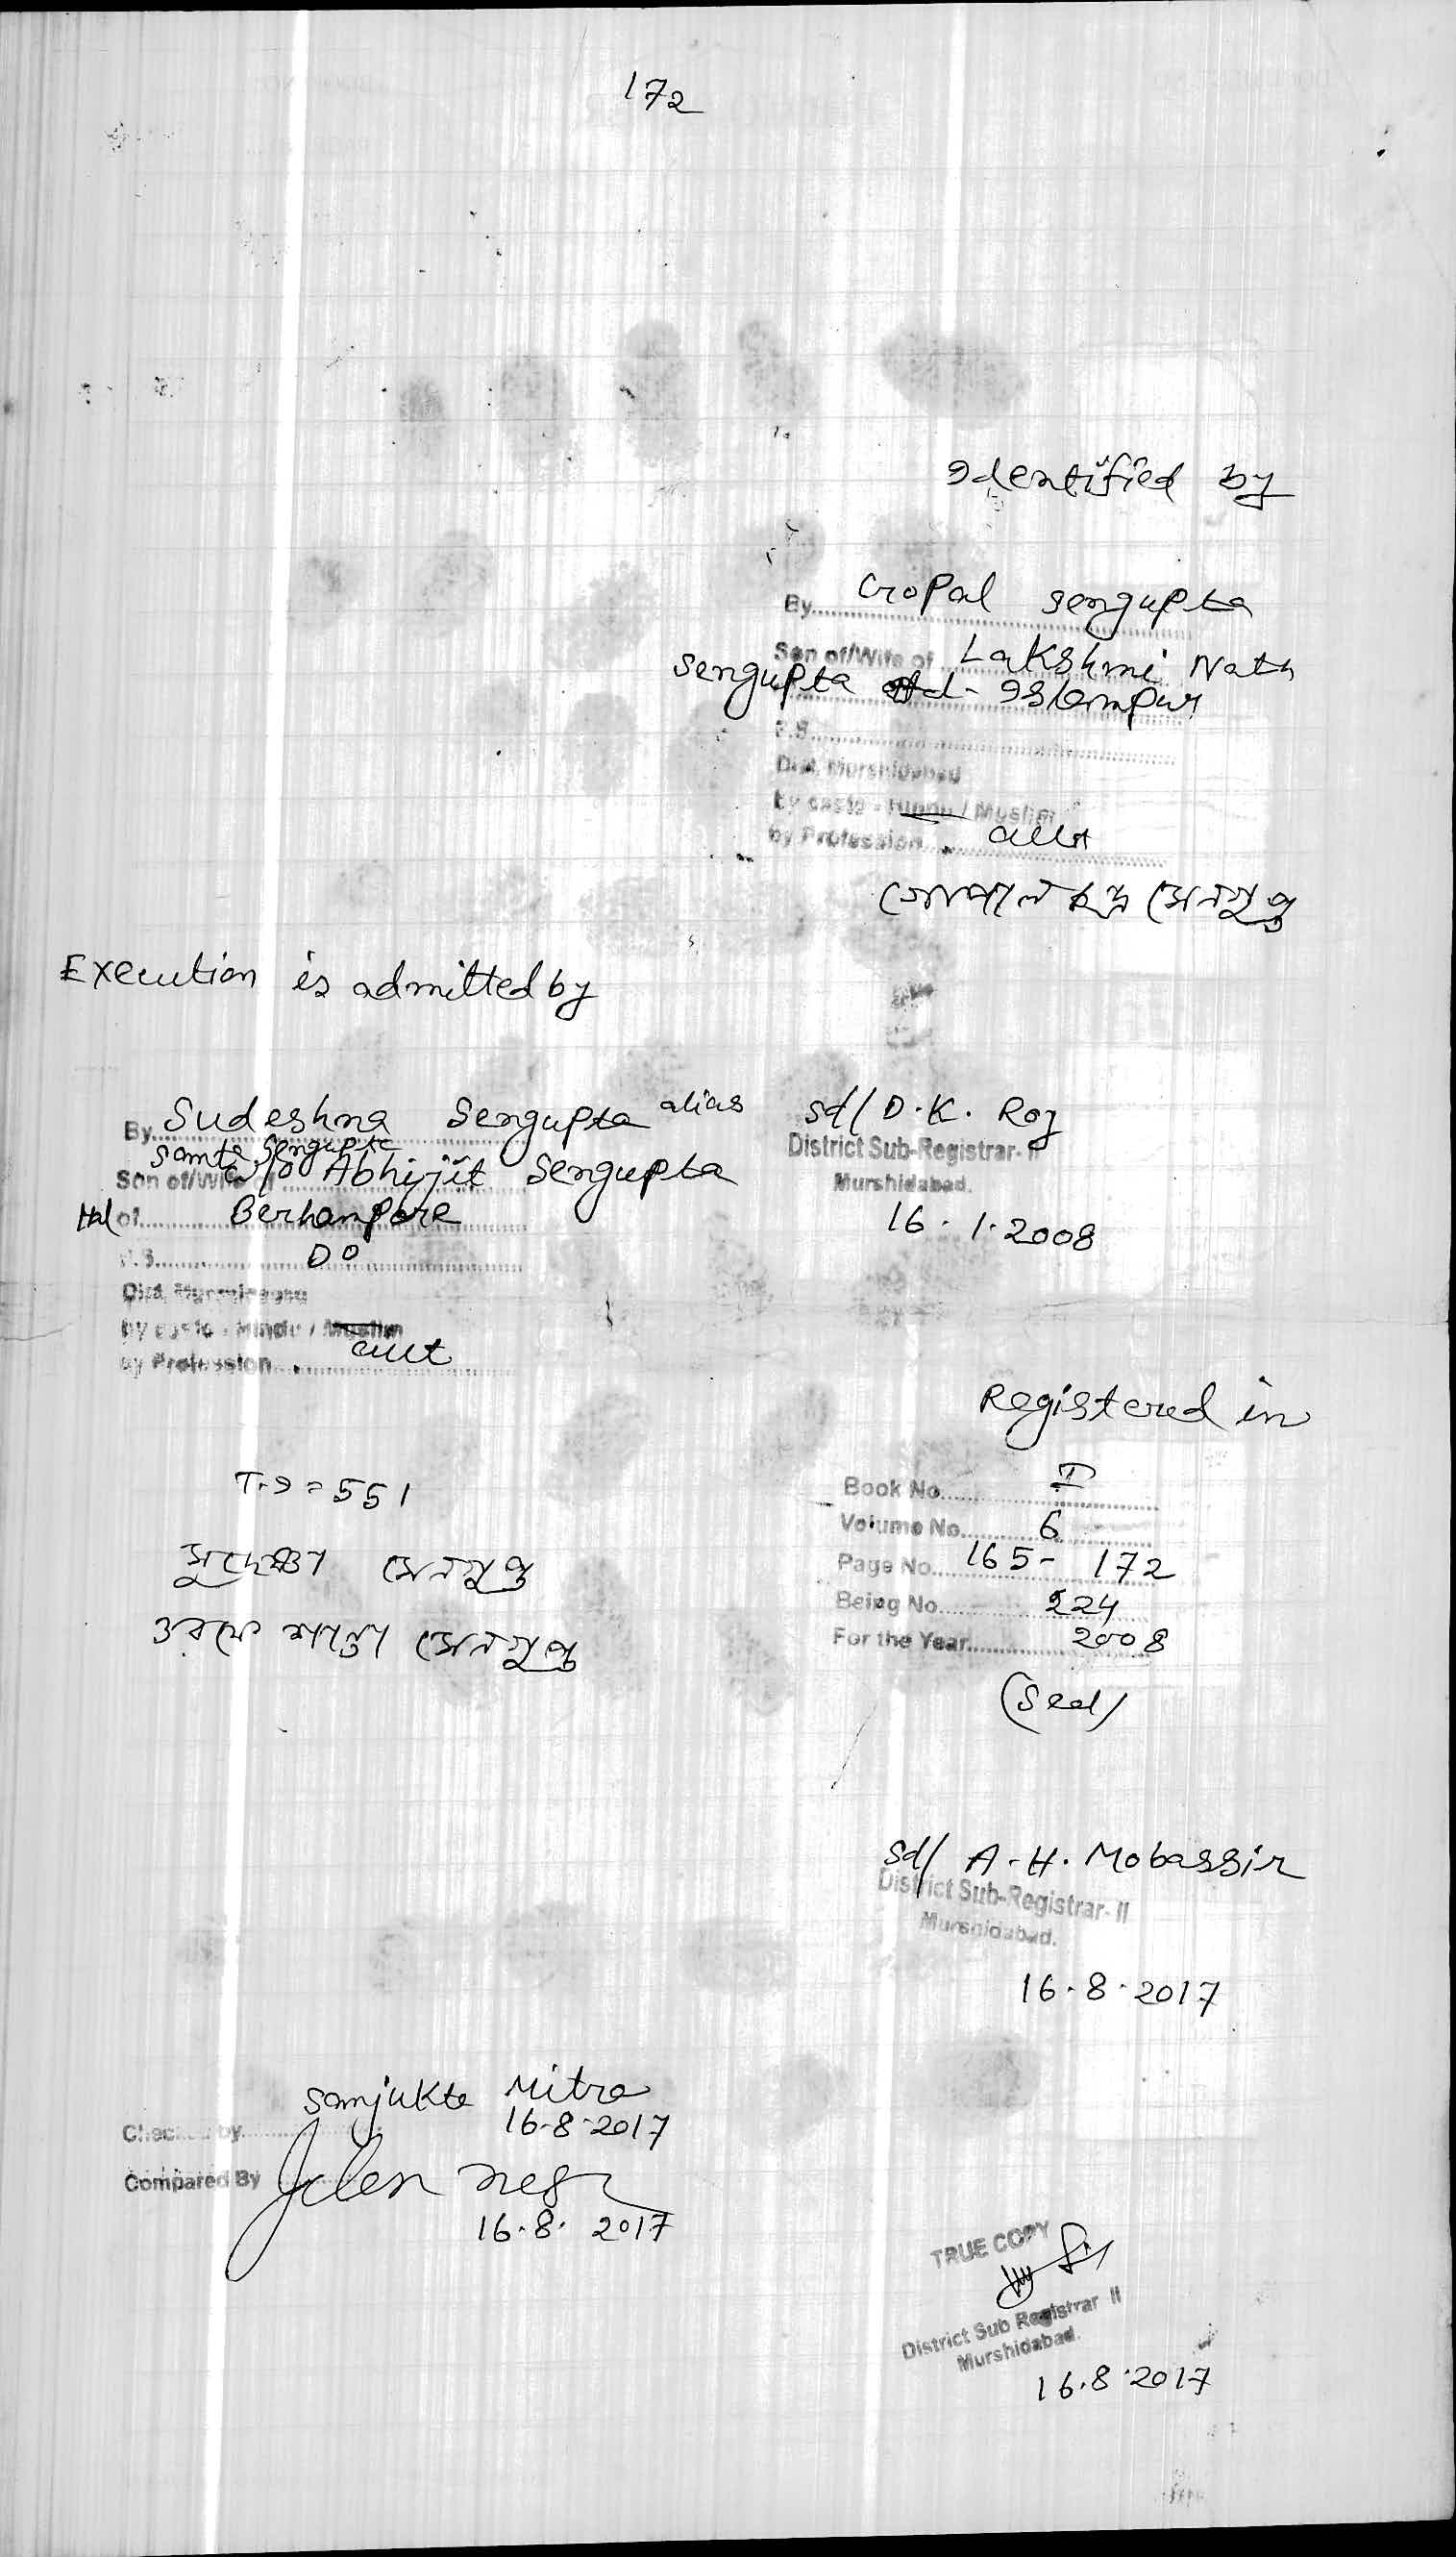 172
Identified by
By Gopal Sengupta
Son of/Wife of Lakshmi Nath
Sengupta Islampur
P.S.
Dist. Murshidabad
by caste - Hindu / Muslim
by Profession
গোপাল চন্দ্র সেনগুপ্ত
Execution is admitted by
By Sudeshna Sengupta alias
Santa Sengupta
Son of/Wife of W/o Abhijit Sengupta
of Berhampore
P.S. Do
Dist. Murshidabad
by caste - Hindu / Muslim
by Profession
Sd/ D.K. Roy
District Sub-Registrar- II
Murshidabad.
16.1.2008
T.I = 551
সুদেষ্ণা সেনগুপ্ত
ওরফে শান্তা সেনগুপ্ত
Registered in
Book No. I
Volume No. 6
Page No. 165 - 172
Being No. 224
For the Year 2008
(Seal)
Sd/ A.H. Mobassir
District Sub-Registrar- II
Murshidabad.
16.8.2017
Sanjukta Mitra
16-8-2017
Checked by
Compared By
16.8.2017
TRUE COPY
District Sub Registrar II
Murshidabad.
16.8.2017